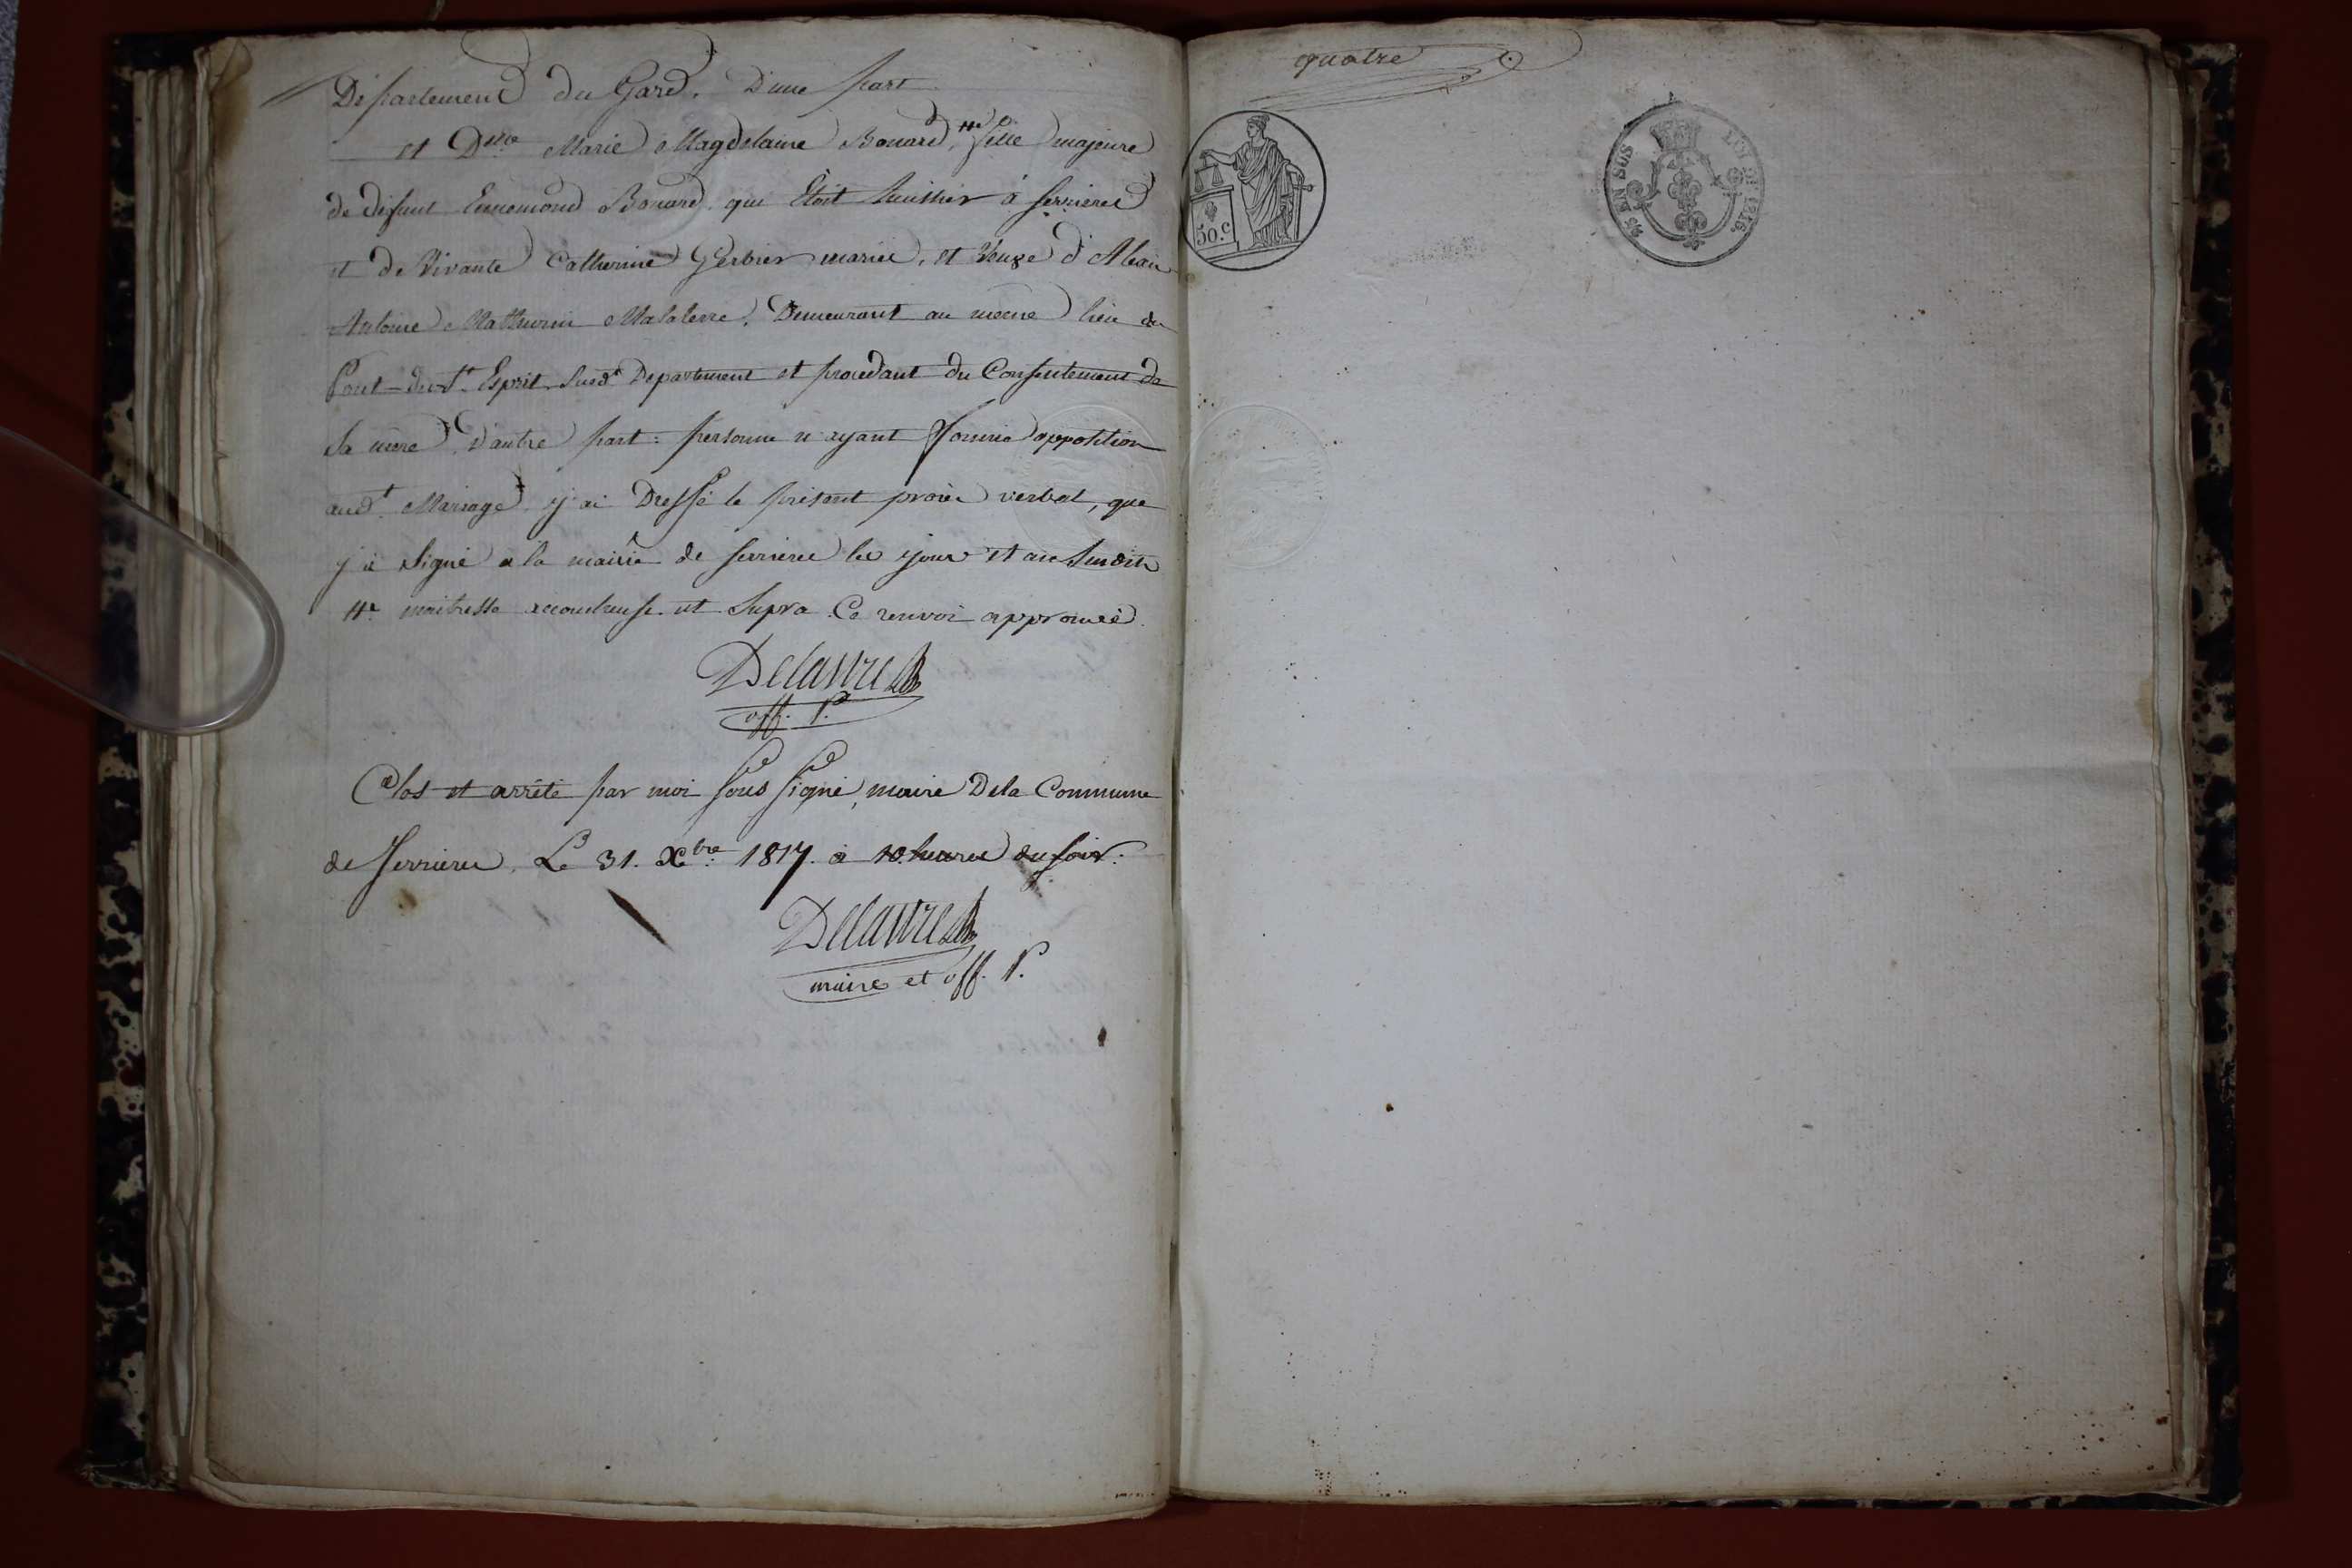 Département du Gard, D'une part
et Dlle Marie Magdelaine Bonard, # fille majeure
de défunt Ennemond Bonard, qui Etoit huissier à Serrieres
et de Vivante Catherine Gerbier mariée, et Veuve d'
Antoine Mathurin Malaterre, Demeurant au même lieu du
Pont-du-St Esprit susdt Département et procédant du Consentement de
Sa mère, D'autre part : personne n'ayant formé opposition
audt Mariage, j'ai Dressé le présent procès verbal, que
j'ai Signé a la mairie de Serrieres les jour et an Susdits
#e maitresse accoucheuse ut Supra Ce renvoi approuvé
Delaure
off. P.
Clos et arrêté par moi sous signé, maire Dela Commune
de Serrieres, Le 31. Xbre 1817. à 10. heures du soir.
Delaure
maire et off. P.
quatre
50.C
EN SUS
LOI DE 1816.